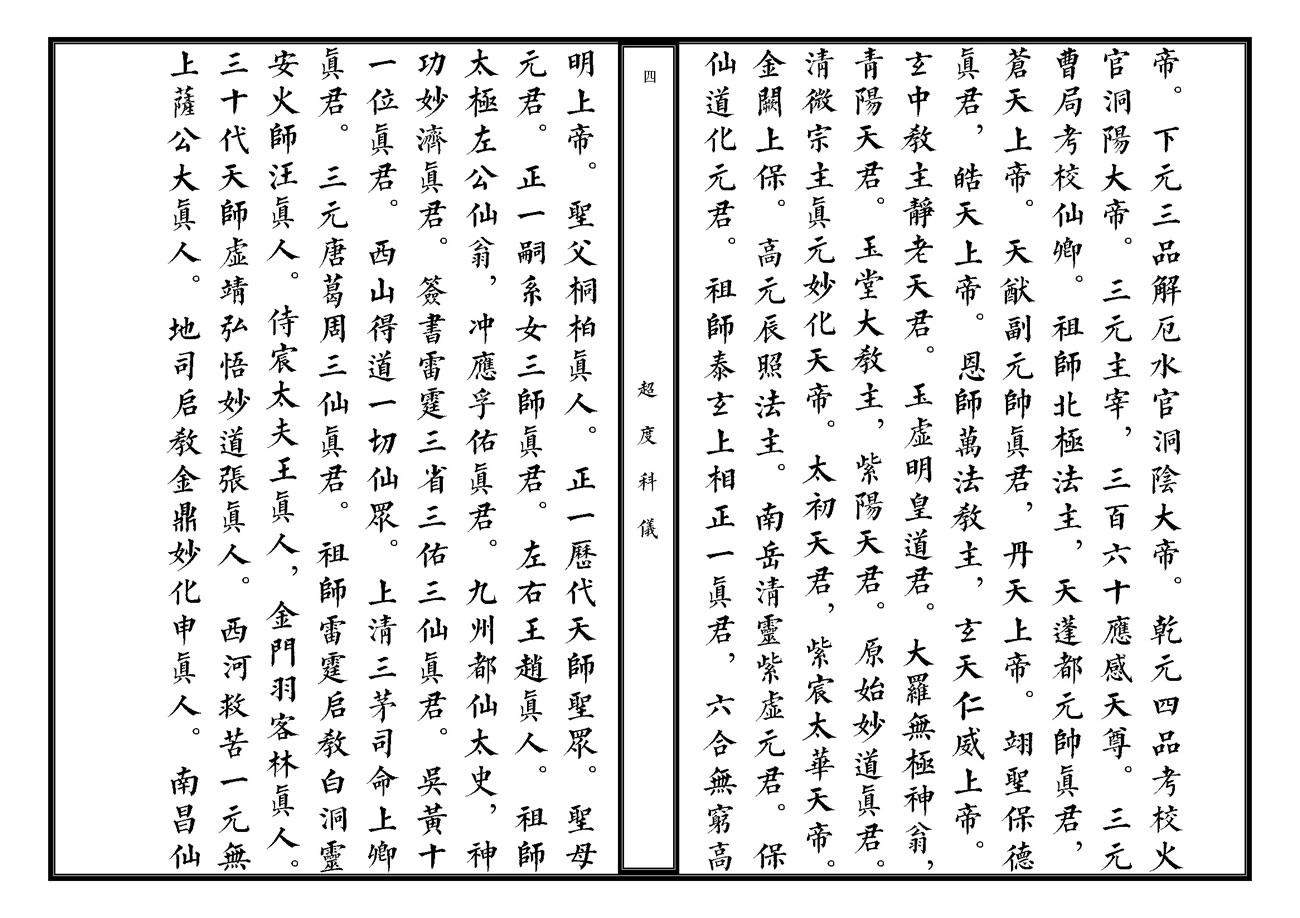 帝。　下元三品解厄水官洞陰大帝。　乾元四品考校火
官洞陽大帝。　三元主宰，　三百六十應感天尊。　三元
曹局考校仙卿。　祖師北極法主，　天蓬都元帥眞君，
蒼天上帝。　天猷副元帥眞君，　丹天上帝。　翊聖保德
眞君，　皓天上帝。　恩師萬法教主，　玄天仁威上帝。
玄中教主靜老天君。　玉虛明皇道君。　大羅無極神翁，
青陽天君。　玉堂大教主，　紫陽天君。　原始妙道眞君。
清微宗主眞元妙化天帝。　太初天君，　紫宸太華天帝。
金闕上保。　高元辰照法主。　南岳清靈紫虛元君。　保
仙道化元君。　祖師泰玄上相正一眞君，　六合無窮高
四
超度科儀
明上帝。　聖父桐柏眞人。　正一歷代天師聖眾。　聖母
元君。　正一嗣系女三師眞君。　左右王趙眞人。　祖師
太極左公仙翁，　冲應孚佑眞君。　九州都仙太史，　神
功妙濟眞君。　簽書雷霆三省三佑三仙眞君。　吳黃十
一位眞君。　西山得道一切仙眾。　上清三茅司命上卿
眞君。　三元唐葛周三仙眞君。　祖師雷霆启教白洞靈
安火師汪眞人。　侍宸太夫王眞人，　金門羽客林眞人。
三十代天師虛靖弘悟妙道張眞人。　西河救苦一元無
上薩公大眞人。　地司启教金鼎妙化申眞人。　南昌仙